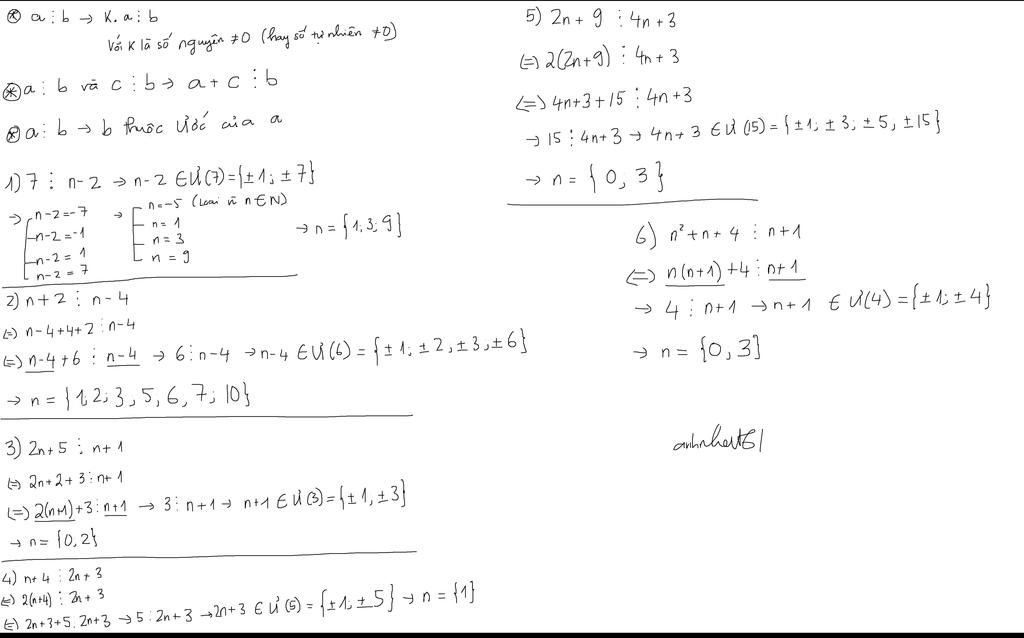 ⊛ a ⋮ b → K.a ⋮ b
Với K là số nguyên ≠0 (hay số tự nhiên ≠0)
⊛ a ⋮ b và c ⋮ b → a + c ⋮ b
⊛ a ⋮ b → b thuộc ước của a
1) 7 ⋮ n-2 → n-2 ∈ Ư(7)={±1; ±7}
→ [ n-2=-7 → [ n=-5 (Loại vì n∈N)
n-2=-1 n=1
n-2=1 n=3 → n={1;3;9}
n-2=7 n=9
2) n+2 ⋮ n-4
(=) n-4+4+2 ⋮ n-4
(=) n-4+6 ⋮ n-4 → 6 ⋮ n-4 → n-4 ∈ Ư(6) = {±1; ±2, ±3, ±6}
→ n = {1;2;3,5,6,7;10}
3) 2n+5 ⋮ n+1
(=) 2n+2+3 ⋮ n+1
(=) 2(n+1)+3 ⋮ n+1 → 3 ⋮ n+1 → n+1 ∈ Ư(3)={±1, ±3}
→ n={0,2}
4) n+4 ⋮ 2n+3
(=) 2(n+4) ⋮ 2n+3
(=) 2n+3+5 ⋮ 2n+3 → 5 ⋮ 2n+3 → 2n+3 ∈ Ư(5) = {±1, ±5} → n = {1}
5) 2n+9 ⋮ 4n+3
(=) 2(2n+9) ⋮ 4n+3
(=) 4n+3+15 ⋮ 4n+3
→ 15 ⋮ 4n+3 → 4n+3 ∈ Ư(15)={±1; ±3; ±5, ±15}
→ n = {0,3}
6) n²+n+4 ⋮ n+1
(=) n(n+1)+4 ⋮ n+1
→ 4 ⋮ n+1 → n+1 ∈ Ư(4)={±1; ±4}
→ n = {0,3}